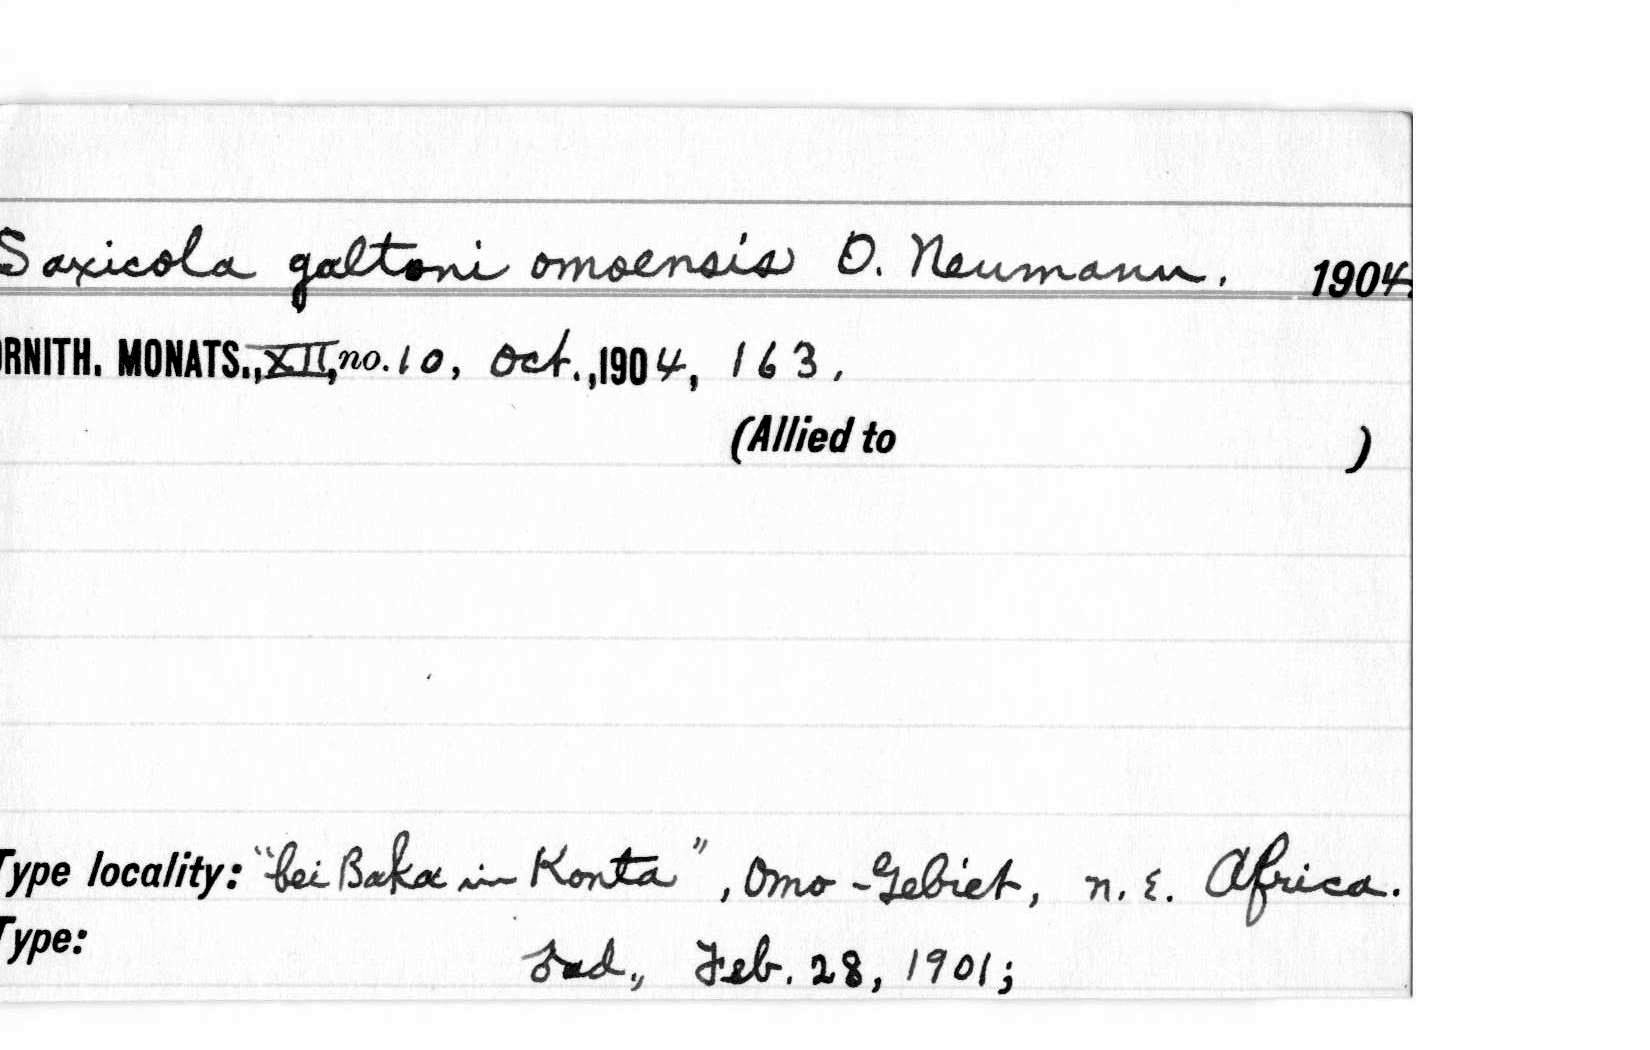 Saxicola galtoni omoensis O. Neumann. 1904.
ORNITH. MONATS., XII, no. 10, Oct., 1904, 163.
(Allied to )
Type locality: "bei Baka in Konta", Omo-Gebiet, n. E. Africa.
Type:
Feb. 28, 1901;